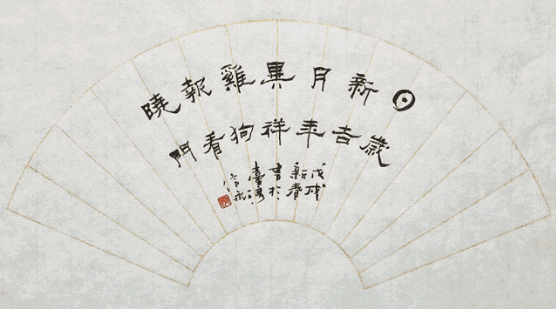 日新月異雞報曉
歲吉年祥狗看門
戊戌
新春
書於
臺灣